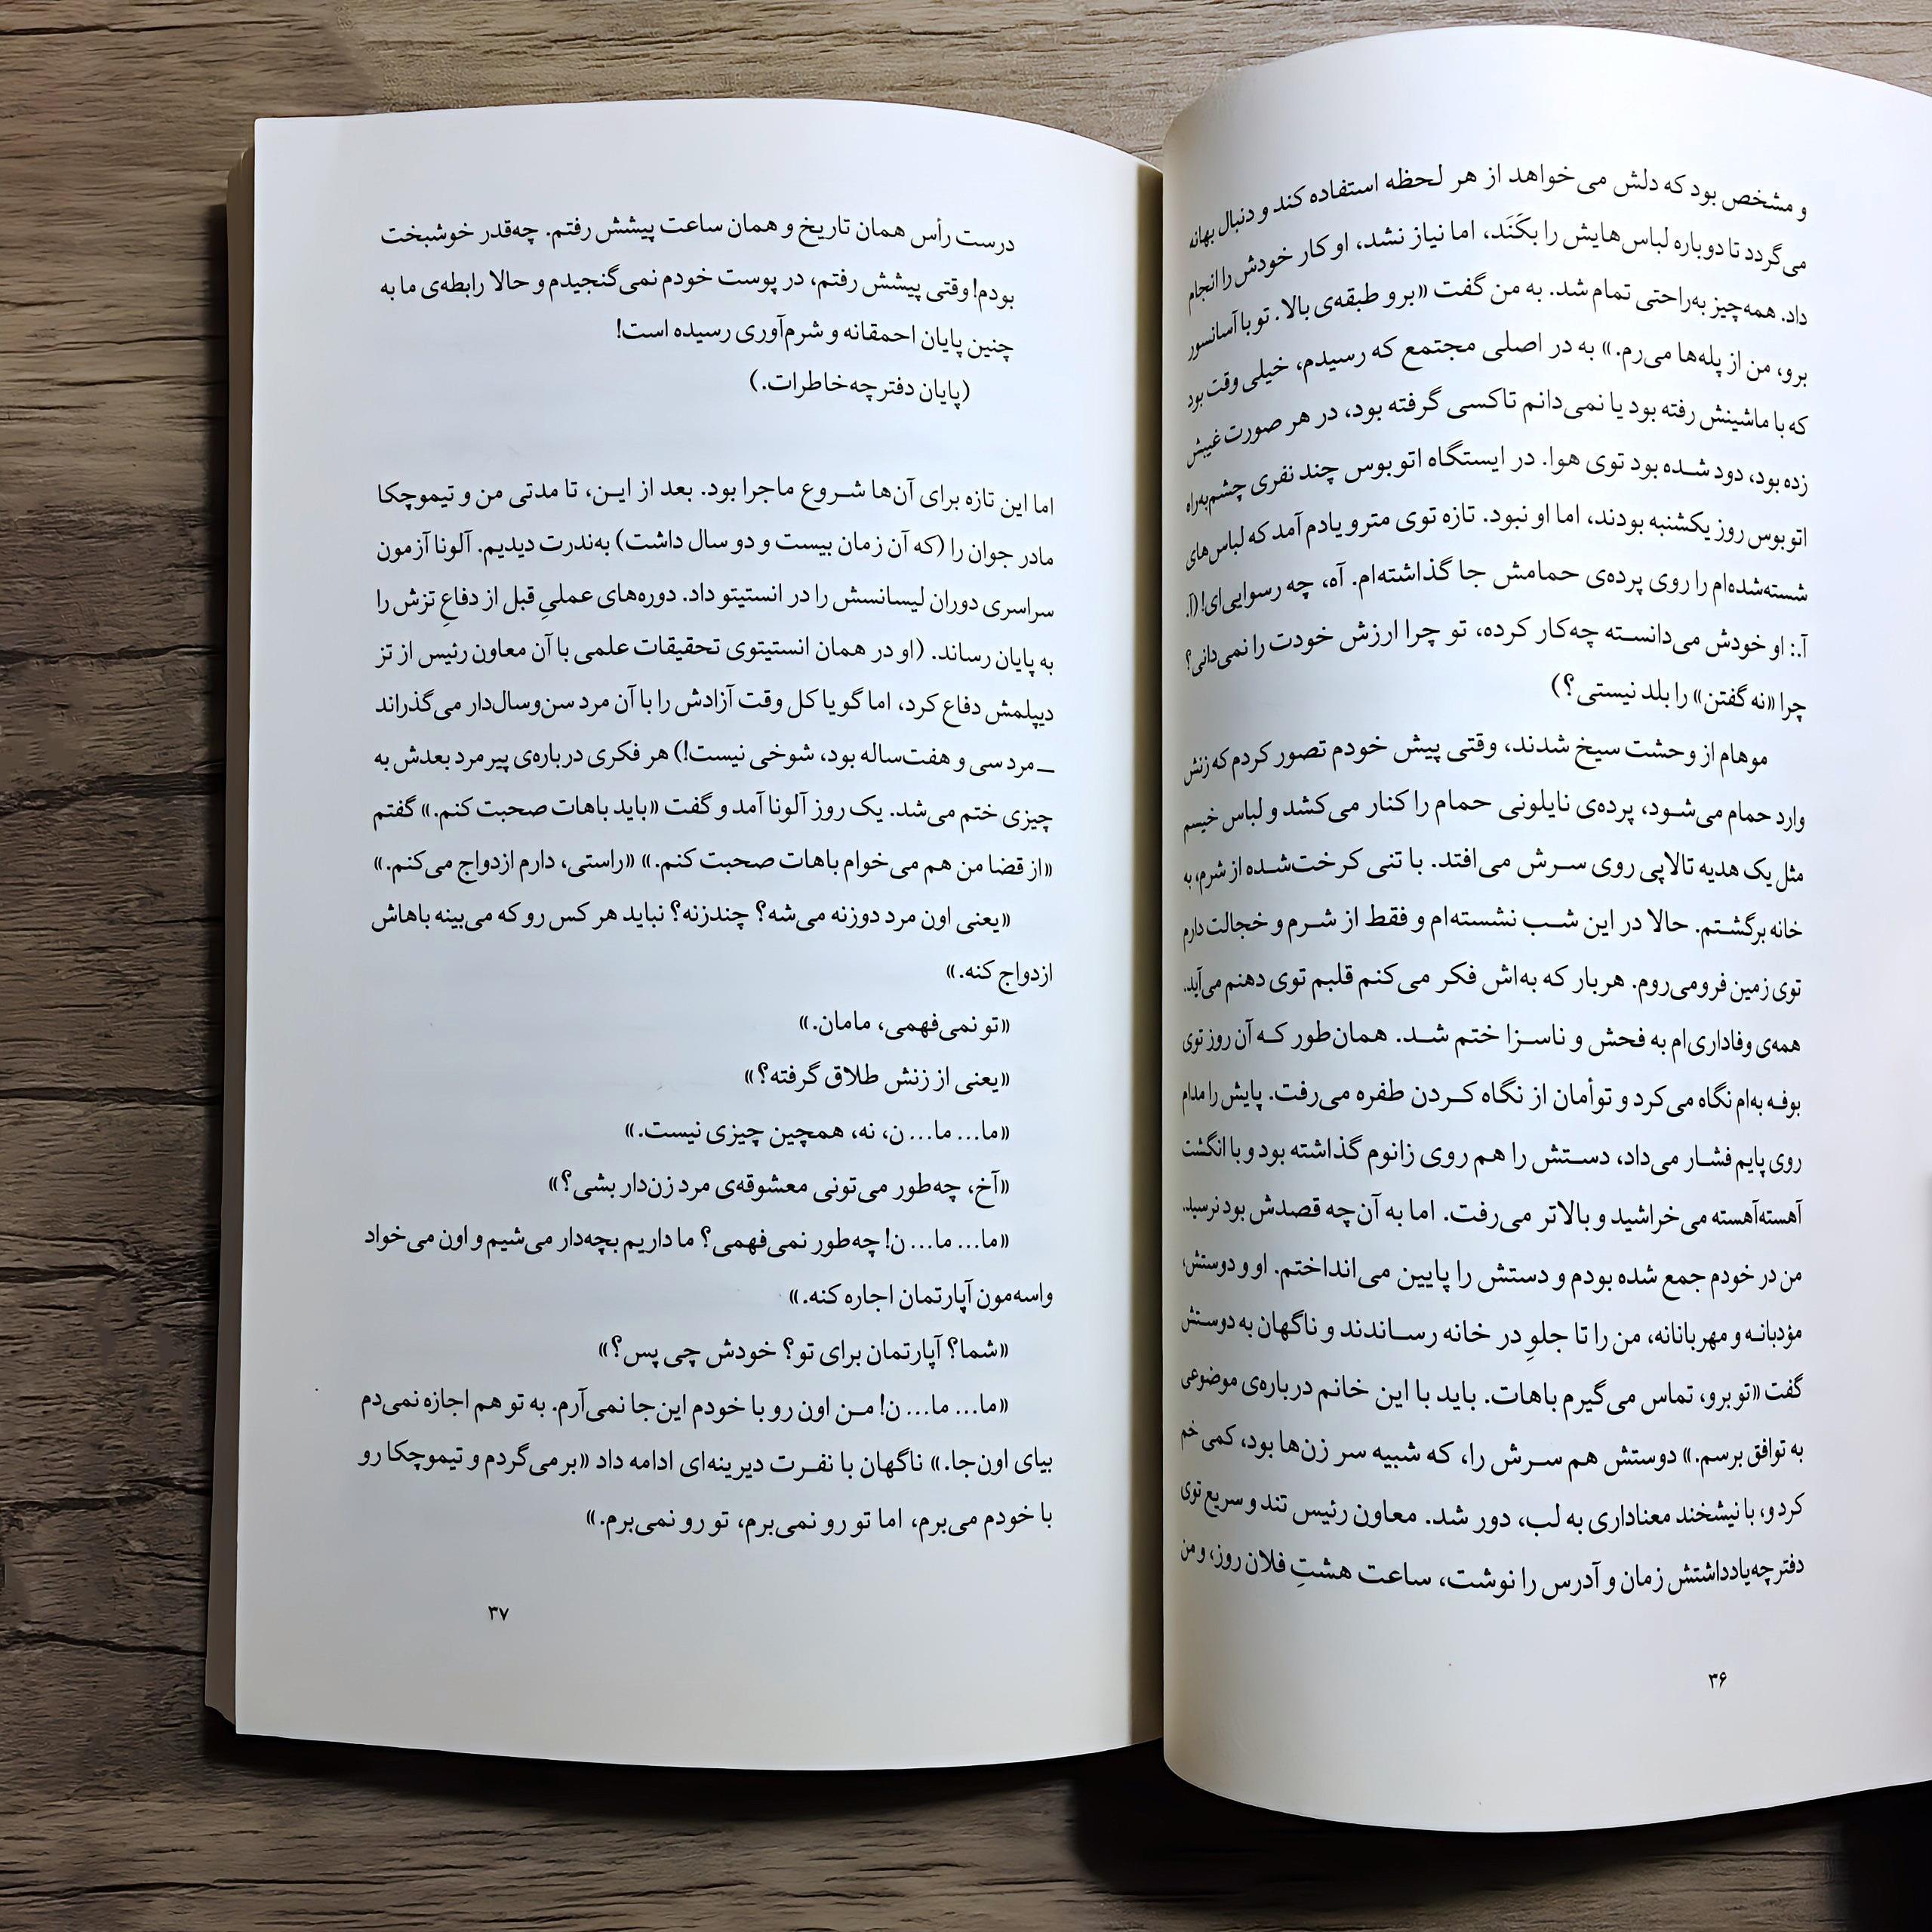 و مشخص بود که دلش می‌خواهد از هر لحظه استفاده کند و دنبال بهانه
می‌گردد تا دوباره لباس‌هایش را بکَنَد، اما نیاز نشد، او کار خودش را انجام
داد. همه‌چیز به‌راحتی تمام شد. به من گفت «برو طبقه‌ی بالا. تو با آسانسور
برو، من از پله‌ها می‌رم.» به در اصلی مجتمع که رسیدم، خیلی وقت بود
که با ماشینش رفته بود یا نمی‌دانم تاکسی گرفته بود، در هر صورت غیبش
زده بود، دود شده بود توی هوا. در ایستگاه اتوبوس چند نفری چشم‌به‌راه
اتوبوس روز یکشنبه بودند، اما او نبود. تازه توی مترو یادم آمد که لباس‌های
شسته‌شده‌ام را روی پرده‌ی حمامش جا گذاشته‌ام. آه، چه رسوایی‌ای! (آ.
آ.: او خودش می‌دانسته چه‌کار کرده، تو چرا ارزش خودت را نمی‌دانی؟
چرا «نه گفتن» را بلد نیستی؟)
موهام از وحشت سیخ شدند، وقتی پیش خودم تصور کردم که زنش
وارد حمام می‌شود، پرده‌ی نایلونی حمام را کنار می‌کشد و لباس خیسم
مثل یک هدیه تالاپی روی سرش می‌افتد. با تنی کرخت‌شده از شرم، به
خانه برگشتم. حالا در این شب نشسته‌ام و فقط از شرم و خجالت دارم
توی زمین فرومی‌روم. هربار که به‌اش فکر می‌کنم قلبم توی دهنم می‌آید.
همه‌ی وفاداری‌ام به فحش و ناسزا ختم شد. همان‌طور که آن روز توی
بوفه به‌ام نگاه می‌کرد و توأمان از نگاه کردن طفره می‌رفت. پایش را مدام
روی پایم فشار می‌داد، دستش را هم روی زانوم گذاشته بود و با انگشت
آهسته‌آهسته می‌خراشید و بالاتر می‌رفت. اما به آن‌چه قصدش بود نرسید.
من در خودم جمع شده بودم و دستش را پایین می‌انداختم. او و دوستش،
مؤدبانه و مهربانانه، من را تا جلوِ در خانه رساندند و ناگهان به دوستش
گفت «تو برو، تماس می‌گیرم باهات. باید با این خانم درباره‌ی موضوعی
به توافق برسم.» دوستش هم سرش را، که شبیه سر زن‌ها بود، کمی خم
کرد و، با نیشخند معناداری به لب، دور شد. معاون رئیس تند و سریع توی
دفترچه‌یادداشتش زمان و آدرس را نوشت، ساعت هشتِ فلان روز، و من
۳۶
درست رأس همان تاریخ و همان ساعت پیشش رفتم. چه‌قدر خوشبخت
بودم! وقتی پیشش رفتم، در پوست خودم نمی‌گنجیدم و حالا رابطه‌ی ما به
چنین پایان احمقانه و شرم‌آوری رسیده است!
(پایان دفترچه‌خاطرات.)
اما این تازه برای آن‌ها شروع ماجرا بود. بعد از این، تا مدتی من و تیموچکا
مادر جوان را (که آن زمان بیست و دو سال داشت) به‌ندرت دیدیم. آلونا آزمون
سراسری دوران لیسانسش را در انستیتو داد. دوره‌های عملیِ قبل از دفاعِ تزش را
به پایان رساند. (او در همان انستیتوی تحقیقات علمی با آن معاون رئیس از تز
دیپلمش دفاع کرد، اما گویا کل وقت آزادش را با آن مرد سن‌وسال‌دار می‌گذراند
ــ مرد سی و هفت‌ساله بود، شوخی نیست!) هر فکری درباره‌ی پیرمرد بعدش به
چیزی ختم می‌شد. یک روز آلونا آمد و گفت «باید باهات صحبت کنم.» گفتم
«از قضا من هم می‌خوام باهات صحبت کنم.» «راستی، دارم ازدواج می‌کنم.»
«یعنی اون مرد دوزنه می‌شه؟ چندزنه؟ نباید هر کس رو که می‌بینه باهاش
ازدواج کنه.»
«تو نمی‌فهمی، مامان.»
«یعنی از زنش طلاق گرفته؟»
«ما... ما... ن، نه، همچین چیزی نیست.»
«آخ، چه‌طور می‌تونی معشوقه‌ی مرد زن‌دار بشی؟»
«ما... ما... ن! چه‌طور نمی‌فهمی؟ ما داریم بچه‌دار می‌شیم و اون می‌خواد
واسه‌مون آپارتمان اجاره کنه.»
«شما؟ آپارتمان برای تو؟ خودش چی پس؟»
«ما... ما... ن! من اون رو با خودم این‌جا نمی‌آرم. به تو هم اجازه نمی‌دم
بیای اون‌جا.» ناگهان با نفرت دیرینه‌ای ادامه داد «برمی‌گردم و تیموچکا رو
با خودم می‌برم، اما تو رو نمی‌برم، تو رو نمی‌برم.»
۳۷